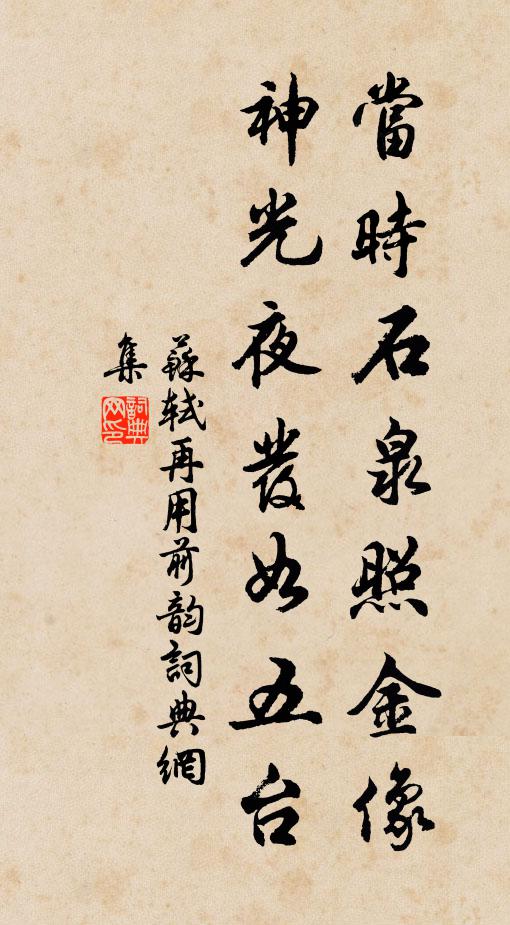 當時石泉照金像
神光夜發如五台
蘇軾再用前韵詞典網
集
詞典网印